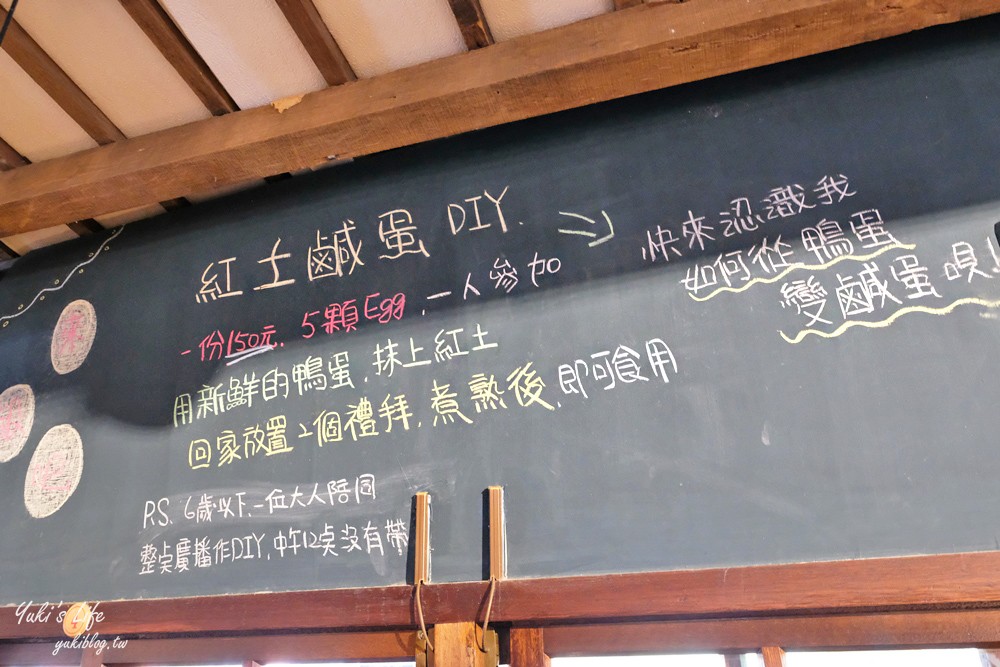 紅土鹹蛋 DIY.
快來認識我
如何從鴨蛋
變鹹蛋唄!
一份150元. 5顆Egg, 一人參加
用新鮮的鴨蛋,抹上紅土
回家放置2個禮拜,煮熟後,即可食用
P.S. 6歲以下,一位大人陪同
整点廣播作DIY,中午12点沒有帶
Yuki's Life
yukiblog.tw